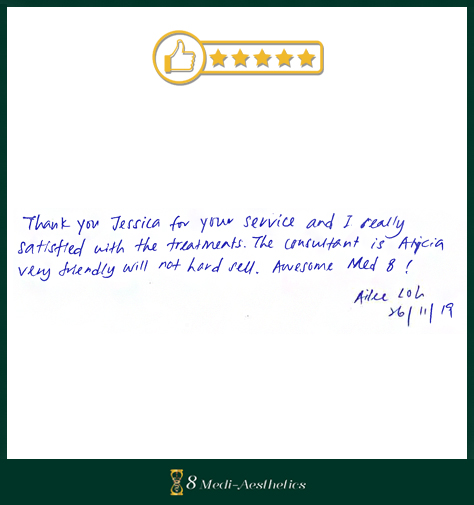 Thank you Jessica for your service and I really
satisfied with the treatments. The consultant is Alycia
very friendly will not hard sell. Awesome Med 8!
Ailee Loh
26/11/19
8 Medi-Aesthetics